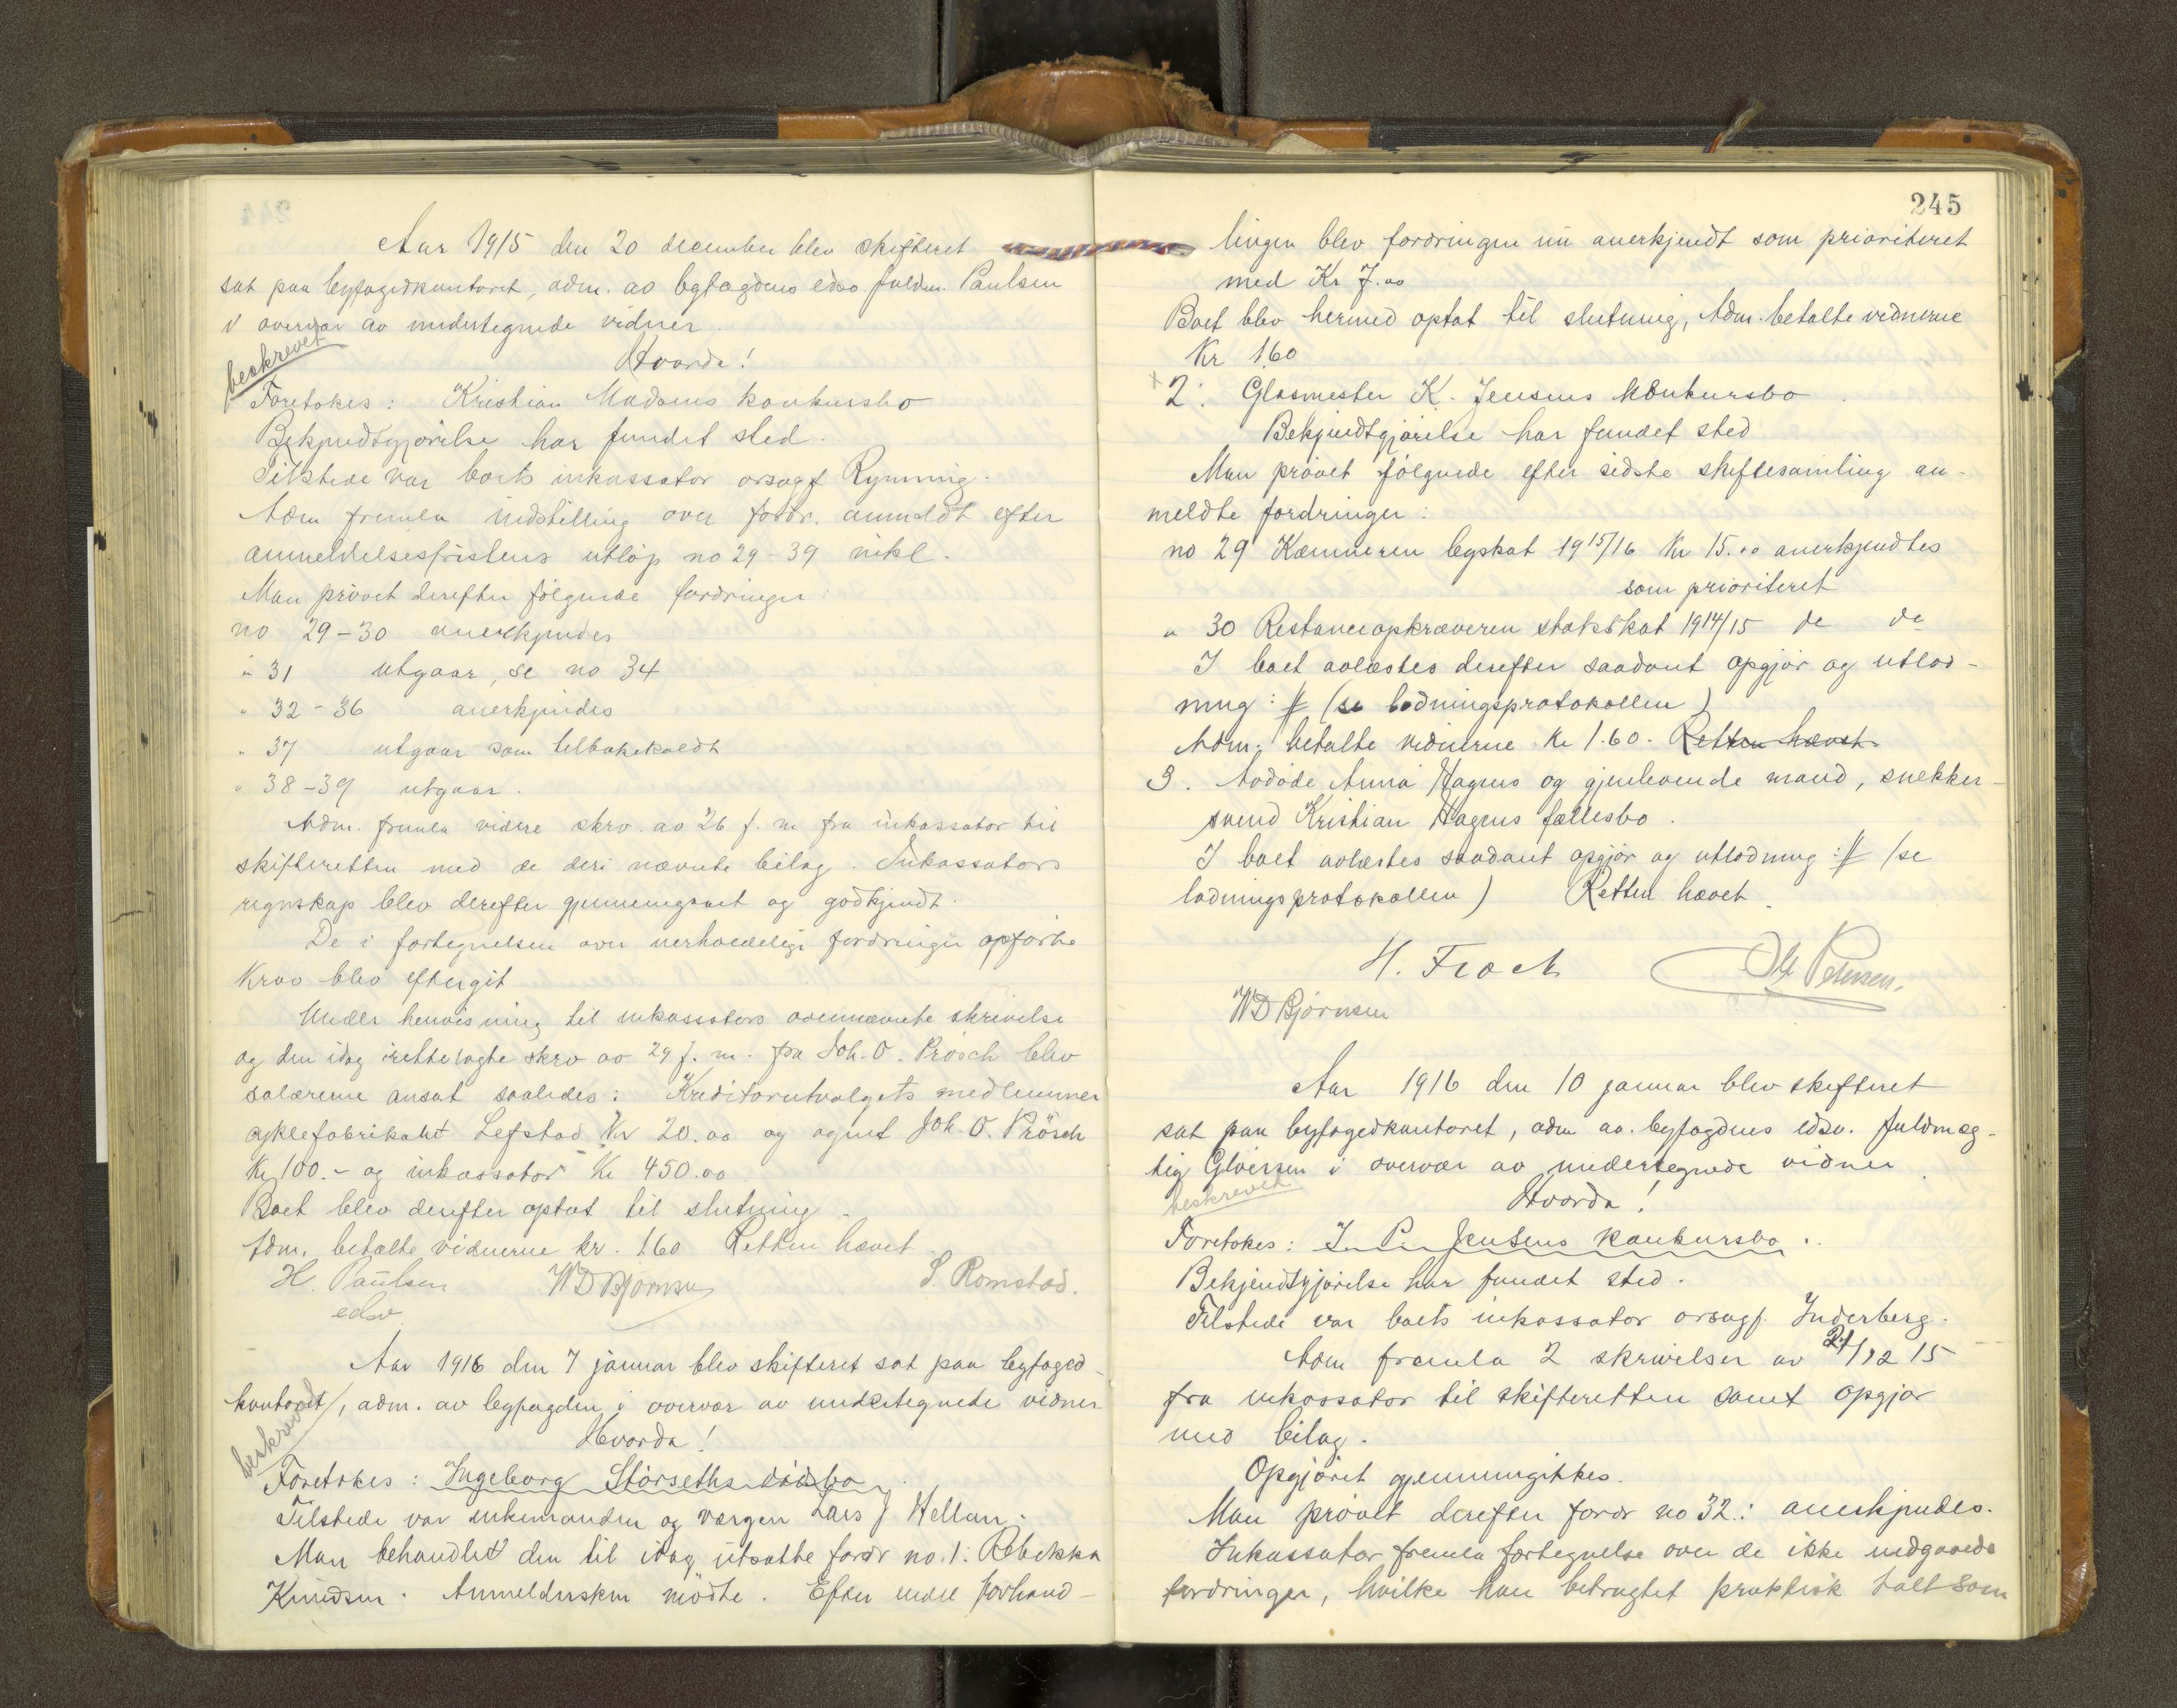 Aar 1915 den 20 december blev skifteret
sat paa byfogedkontoret, adm. av byfogdens edsv. fuldm. Paulsen
i overvær av undertegnede vidner
beskrevet
Hvorda!
Foretokes: Kristian Madsens konkursbo
Bekjendtgjørelse har fundet sted.
Tilstede var boets inkassator orsagf Rynning.
Adm fremla indstilling over fordr. anmeldt efter
anmeldelsesfristens utløp no 29-39 inkl.
Man prøvet derefter følgende fordringer:
no 29-30 anerkjendes
" 31 utgaar, se no 34
" 32-36 anerkjendes
" 37 utgaar som tilbakekaldt
" 38-39 utgaar.
Adm. fremla videre skrv. av 26 f. m fra inkassator til
skifteretten med de deri nævnte bilag. Inkassators
regnskap blev derefter gjennemgaaet og godkjendt.
De i fortegnelsen over uerholdelige fordringer opførte
krav blev eftergit
Under henvisning til inkassators ovennævnte skrivelse
og den idag iretteslagte skrv av 29 f. m. fra Joh. O. Prøsch blev
salærerne ansat saaledes: Kreditorutvalgets medlemmer
cyklefabrikant Lefstad Kr 20.00 og agent Joh. O. Prösch
Kr 100.- og inkassator Kr 450.00
Boet blev derefter optat til slutning.
Adm. betalte vidnerne kr. 1.60 Retten hævet.
H. Paulsen WD Bjørnsen S. Romstad.
edsv.
Aar 1916 den 7 januar blev skifteret sat paa byfoged-
kontoret, adm. av byfogden i overvær av undertegnede vidner
beskrevet
Hvorda!
Foretokes: Ingeborg Størseths dødsbo.
Tilstede var enkemanden og vergen Lars J Hellan.
Man behandlet den til idag utsatte fordr no. 1: Rebekka
Knudsen. Anmeldersken mødte. Efter endel forhand-
245
lingen blev fordringen nu anerkjendt som prioriteret
med Kr 7.00
Boet blev hermed optat til slutning, Adm. betalte vidnerne
Kr 1.60
2. Glasmester K. Jensens konkursbo
Bekjendtgjørelse har fundet sted
Man prøvet følgende efter sidste skiftesamling an-
meldte fordringer:
no 29 Kæmneren byskat 1915/16 Kr 15.00 anerkjendtes
som prioriteret
" 30 Restanceopkræveren statsskat 1914/15 do do
I boet avlæstes derefter saadant opgjør og utlod-
ning: # (se lodningsprotokollen)
Adm. betalte vidnerne Kr 1.60. Retten hævet
3. Avdøde Anna Hagens og gjenlevende mand, snekker-
svend Kristian Hagens fællesbo.
I boet avlæstes saadant opgjør og utlodning: # (se
lodningsprotokollen) Retten hævet.
H. Froch Petersen.
WD Bjørnsen
Aar 1916 den 10 januar blev skifteret
sat paa byfogedkontoret, adm av. byfogdens edsv. fuldmæg-
tig Gløersen i overvær av undertegnede vidner
beskrevet
Hvorda!
Foretokes: I. P. Jensens konkursbo.
Bekjendtgjørelse har fundet sted.
Tilstede var boets inkassator orsagf. Inderberg.
Adm fremla 2 skrivelser av 21/12 15
fra inkassator til skifteretten samt opgjør
med bilag.
Opgjøret gjennemgikkes.
Man prøvet derefter fordr no 32: anerkjendes.
Inkassator fremla fortegnelse over de ikke indgaaede
fordringer, hvilke han betragtet praktisk talt som